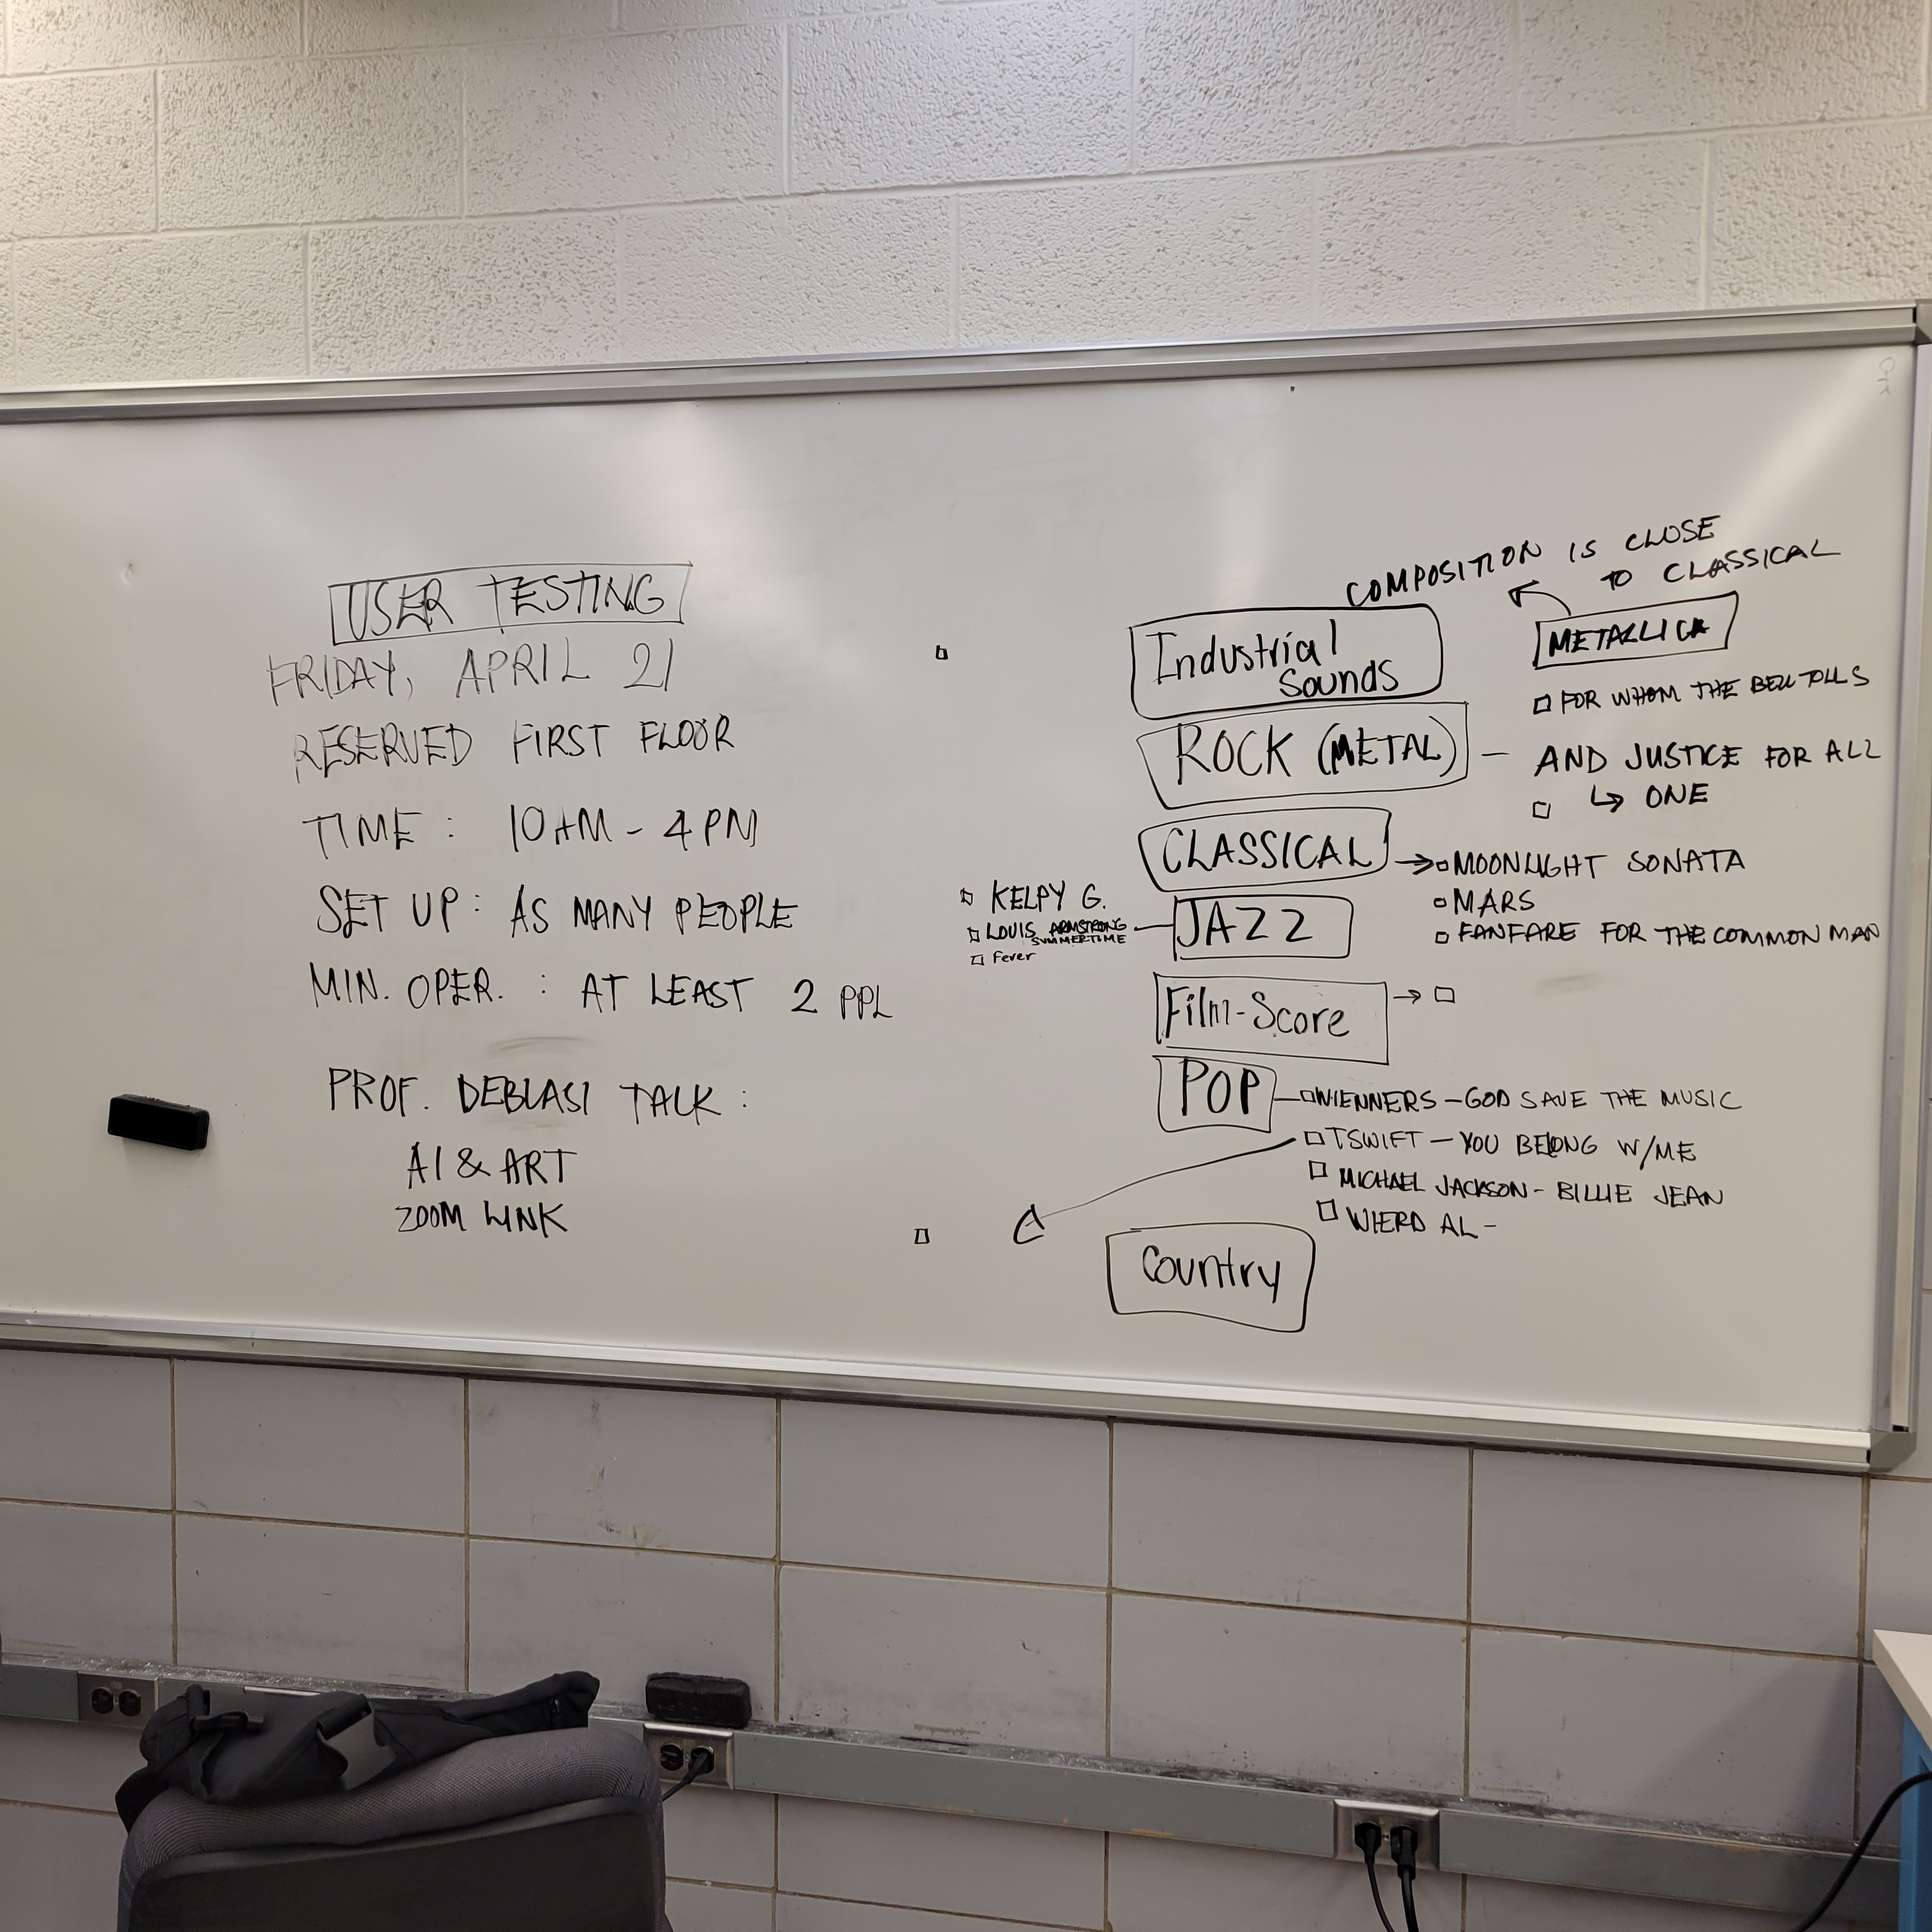 USER TESTING
FRIDAY, APRIL 21
RESERVED FIRST FLOOR
TIME : 10AM - 4PM
SET UP : AS MANY PEOPLE
MIN. OPER. : AT LEAST 2 PPL
PROF. DEBLASI TALK :
AI & ART
ZOOM LINK
COMPOSITION IS CLOSE
TO CLASSICAL
METALLICA
FOR WHOM THE BELL TOLLS
Industrial
Sounds
ROCK (METAL) - AND JUSTICE FOR ALL
↳ ONE
CLASSICAL → MOONLIGHT SONATA
MARS
FANFARE FOR THE COMMON MAN
JAZZ
KELPY G.
LOUIS ARMSTRONG
SUMMERTIME
Fever
Film-Score →
POP - WIENNERS - GOD SAVE THE MUSIC
TSWIFT - YOU BELONG W/ME
MICHAEL JACKSON - BILLIE JEAN
WIERD AL -
Country